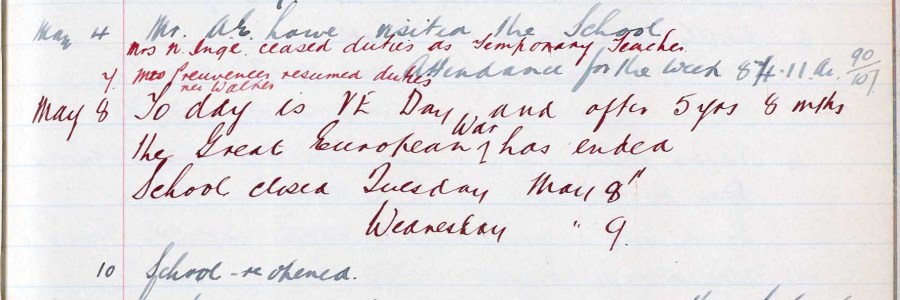 May 4 Mr. A.E. Lowe visited the School
Mrs N. Inge ceased duties as Temporary Teacher
7 Mrs resumed duties Attendance for the week 84.11 Av. 90/107
nee Walker
May 8 To day is VE Day and after 5 yrs 8 mths
the Great European War has ended
School closed Tuesday May 8th
Wednesday " 9.
10 School re opened.